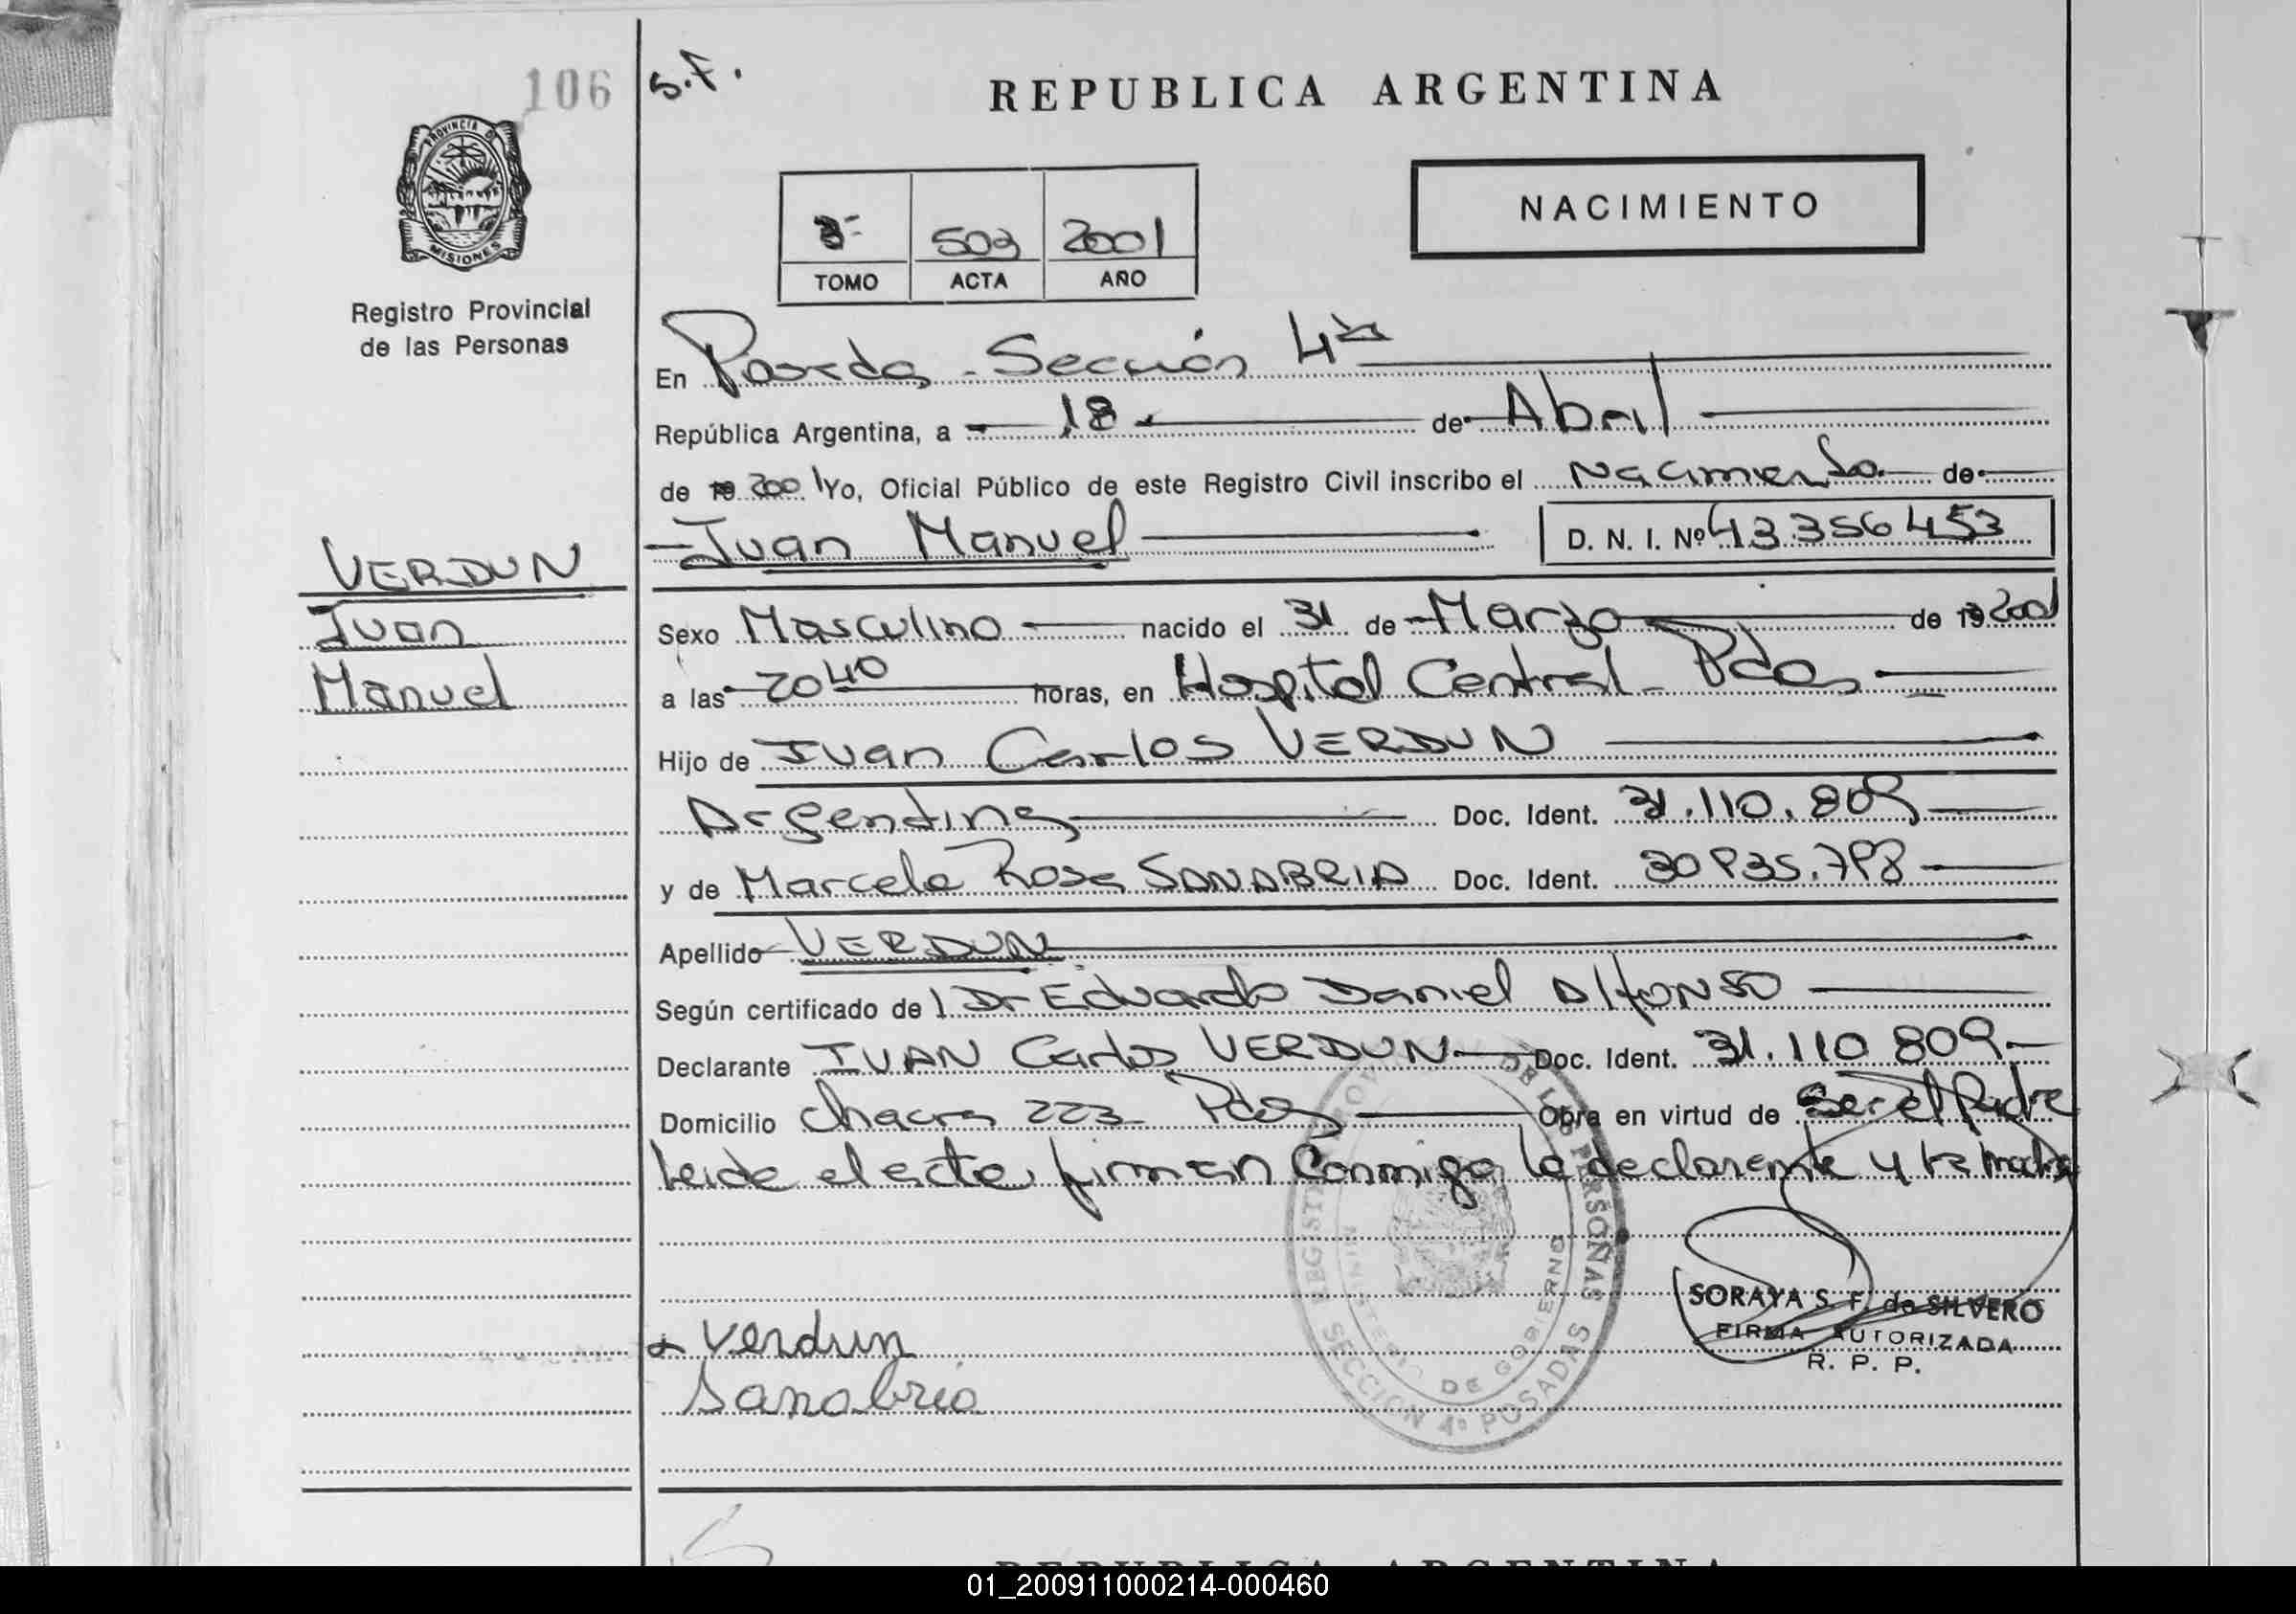 106
S.F.
REPUBLICA ARGENTINA
PROVINCIA D
MISIONES
Registro Provincial
de las Personas
503 2001
TOMO ACTA AÑO
NACIMIENTO
En Posadas - Sección 4ta
República Argentina, a 18 de Abril
de 19 2001 Yo, Oficial Público de este Registro Civil inscribo el Nacimiento de
Juan Manuel D. N. I. Nº 43.356.453
VERDUN
Juan
Manuel
Sexo Masculino nacido el 31 de Marzo de 19 2001
a las 20 40 horas, en Hospital Central - Pdas
Hijo de Juan Carlos VERDUN
Argentina Doc. Ident. 31.110.809
y de Marcela Rosa SANABRIA Doc. Ident. 30 935.798
Apellido VERDUN
Según certificado de l Dr Eduardo Daniel Alfonso
Declarante JUAN Carlos VERDUN Doc. Ident. 31.110 809
Domicilio Chacra 223 Pdas Obra en virtud de Ser el Padre
Leida el acta, firman Conmigo la declarante y la madre
REGISTRO PROV DE LAS PERSONAS
MINISTERIO DE GOBIERNO
SECCION 4º POSADAS
SORAYA S. F. de SILVERO
FIRMA AUTORIZADA
R. P. P.
Verdun
Sanabria
REPUBLICA ARGENTINA
01_200911000214-000460